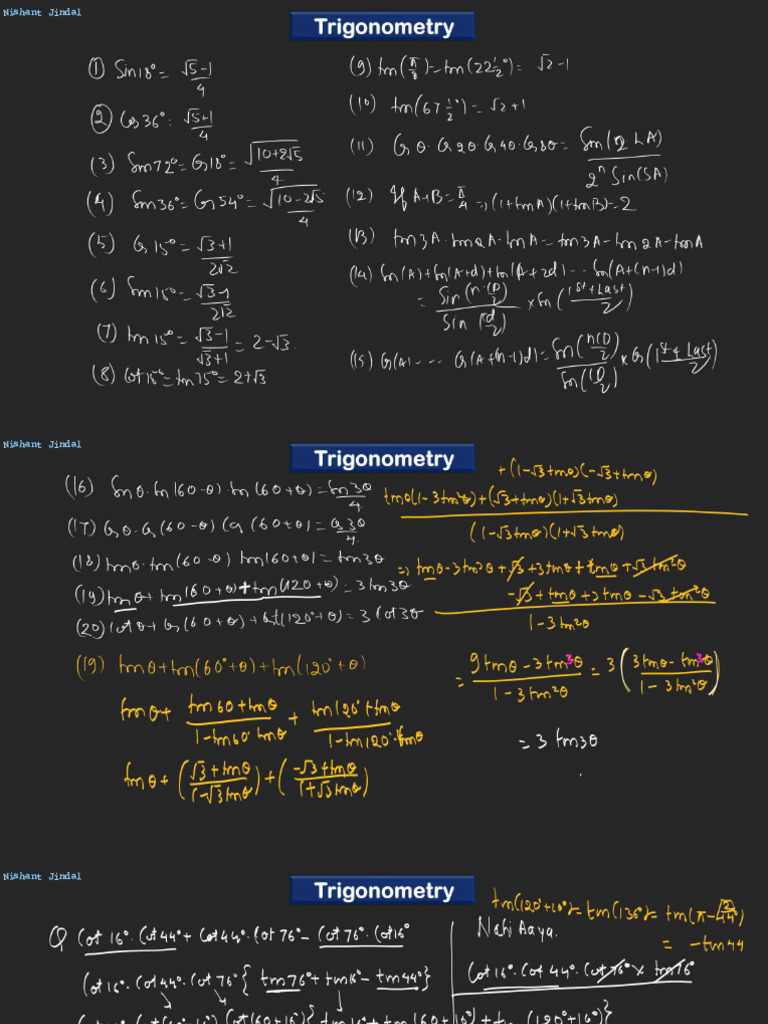 Nishant Jindal
Trigonometry
(1) Sin18° = √5-1/4
(2) Cos36° = √5+1/4
(3) Sin72° = Cos18° = √10+2√5/4
(4) Sin36° = Cos54° = √10-2√5/4
(5) Cos15° = √3+1/2√2
(6) Sin15° = √3-1/2√2
(7) tan15° = √3-1/√3+1 = 2-√3.
(8) Cot15° = tan75° = 2+√3
(9) tan(π/8) = tan(22½°) = √2-1
(10) tan(67½°) = √2+1
(11) Cosθ.Cos2θ.Cos4θ.Cos8θ = Sin(2 LA)/2ⁿ Sin(SA)
(12) If A+B = π/4 ⇒ (1+tanA)(1+tanB) = 2
(13) tan3A.tan2A.tanA = tan3A-tan2A-tanA
(14) Sin(A)+Sin(A+d)+Sin(A+2d)... Sin(A+(n-1)d)
= Sin(n.D/2)/Sin(D/2) × Sin(1st+Last/2)
(15) Cos(A).... Cos(A+(n-1)d) = Sin(nD/2)/Sin(D/2) × Cos(1st+Last/2)
Nishant Jindal
Trigonometry
(16) Sinθ.Sin(60-θ).Sin(60+θ) = Sin3θ/4
(17) Cosθ.Cos(60-θ)Cos(60+θ) = Cos3θ/4.
(18) tanθ.tan(60-θ)tan(60+θ) = tan3θ
(19) tanθ+tan(60+θ)+tan(120+θ) = 3tan3θ
(20) Cotθ+Cot(60+θ)+Cot(120°+θ) = 3Cot3θ
(19) tanθ+tan(60°+θ)+tan(120°+θ)
tanθ + tan60+tanθ/1-tan60°tanθ + tan120°+tanθ/1-tan120°.tanθ
tanθ + (√3+tanθ/1-√3tanθ) + (-√3+tanθ/1+√3tanθ)
+(1-√3tanθ)(-√3+tanθ)
tanθ(1-3tan²θ)+(√3+tanθ)(1+√3tanθ)
(1-√3tanθ)(1+√3tanθ)
⇒ tanθ-3tan³θ+√3+3tanθ+tanθ+√3tan²θ
-√3+tanθ+3tanθ-√3tan²θ
1-3tan²θ
= 9tanθ-3tan³θ/1-3tan²θ = 3(3tanθ-tan³θ/1-3tan²θ)
= 3tan3θ
Nishant Jindal
Trigonometry
Q Cot16°.Cot44°+Cot44°.Cot76°-Cot76°.Cot16°
Cot16°.Cot44°.Cot76°{tan76°+tan16°-tan44°}
tan(120°+16°) = tan(136°) = tan(π-44°)
= -tan44
Nahi Aaya.
Cot16°.Cot44°.Cot76°×tan76°